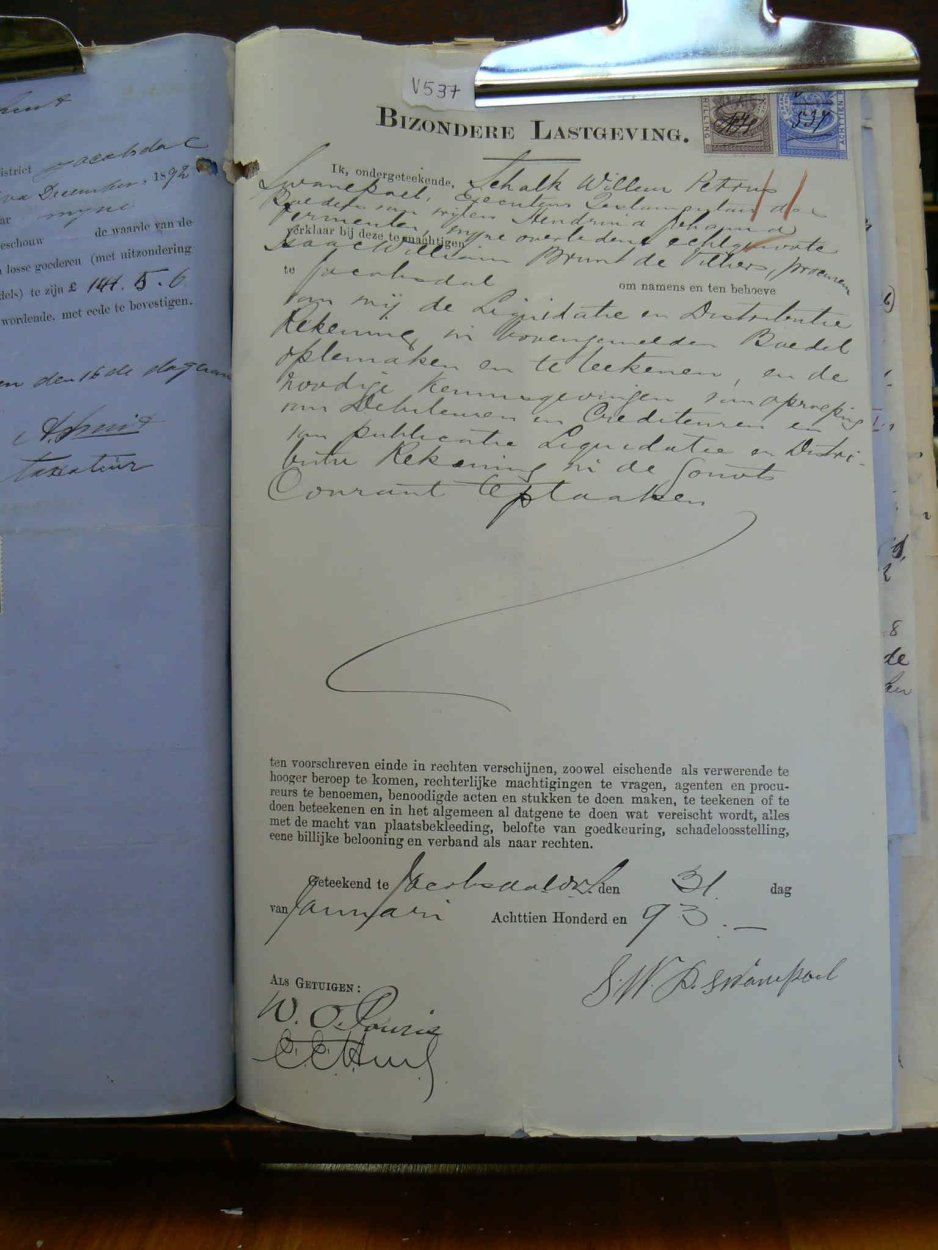 istrict Jacobsdal
December, 1892
mijne
eschouw de waarde van de
losse goederen (met uitzondering
dels) te zijn £ 141.5.6
wordende, met eede te bevestigen.
en den 16de dag van
Taxateur
V537
BIZONDERE LASTGEVING.
537
Ik, ondergeteekende, Schalk Willem Petrus
Swanepoel, Executeur Testamentair
Boedel van wijlen Hendrina Johanna
mijne overledene echtgenoote
verklaar bij deze te machtigen
Isaac William Bruni de Villiers, procureur
te Jacobsdal om namens en ten behoeve
van mij de Liquidatie en Distributie
Rekening in bovengemelden Boedel
opte maken en te teekenen, en de
noodige kennisgevingen van oproeping
van Debiteuren en Crediteuren en
van publicatie Liquidatie en Distri-
butie Rekening in de Gouvts
Courant te plaatsen
ten voorschreven einde in rechten verschijnen, zoowel eischende als verwerende te
hooger beroep te komen, rechterlijke machtigingen te vragen, agenten en procu-
reurs te benoemen, benoodigde acten en stukken te doen maken, te teekenen of te
doen beteekenen en in het algemeen al datgene te doen wat vereischt wordt, alles
met de macht van plaatsbekleeding, belofte van goedkeuring, schadeloosstelling,
eene billijke belooning en verband als naar rechten.
Geteekend te Jacobsdal den 31 dag
van Januari Achttien Honderd en 93.—
S.W.P. Swanepoel
ALS GETUIGEN:
W. O.